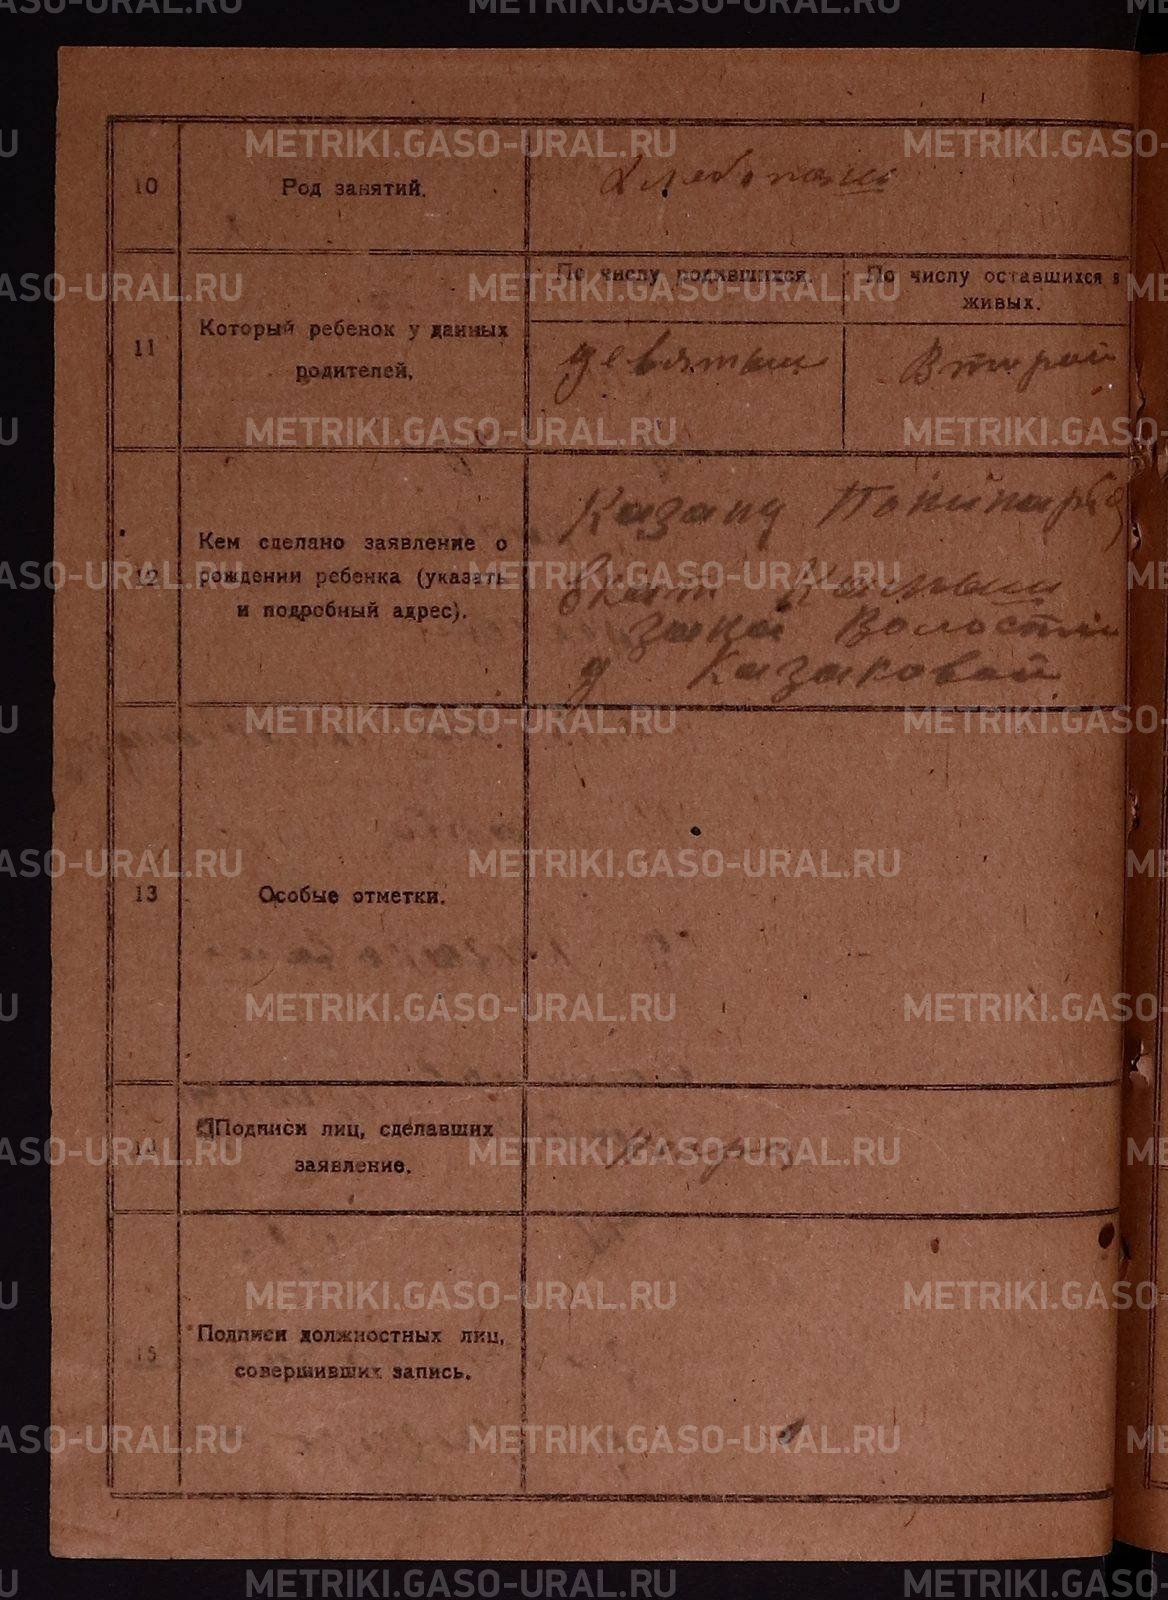 10
Род занятий.
Хлебопашец
11
Который ребенок у данных
родителей.
По числу родившихся.
девятый
По числу оставшихся в
живых.
Второй
12
Кем сделано заявление о
рождении ребенка (указать
и подробный адрес).
Волости
д Казаковой
13
Особые отметки.
14
Подписи лиц, сделавших
заявление.
15
Подписи должностных лиц,
совершивших запись.
METRIKI.GASO-URAL.RU